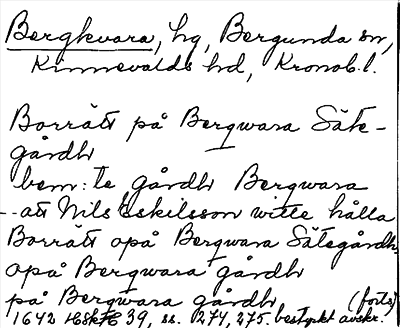 Bergkvara, hg, Bergunda sn,
Kinnevalds hd, Kronob.l.
Borrätt på Bergwara Säte-
gårdh
bem:te gårdh Bergwara
-- att Nils Eskilsson wille hålla
Borrätt opå Bergwara Sätegårdh,
opå Bergwara gårdh
på Bergwara gårdh (forts)
1642 39, ss. 274, 275. bestyrkt avskr.